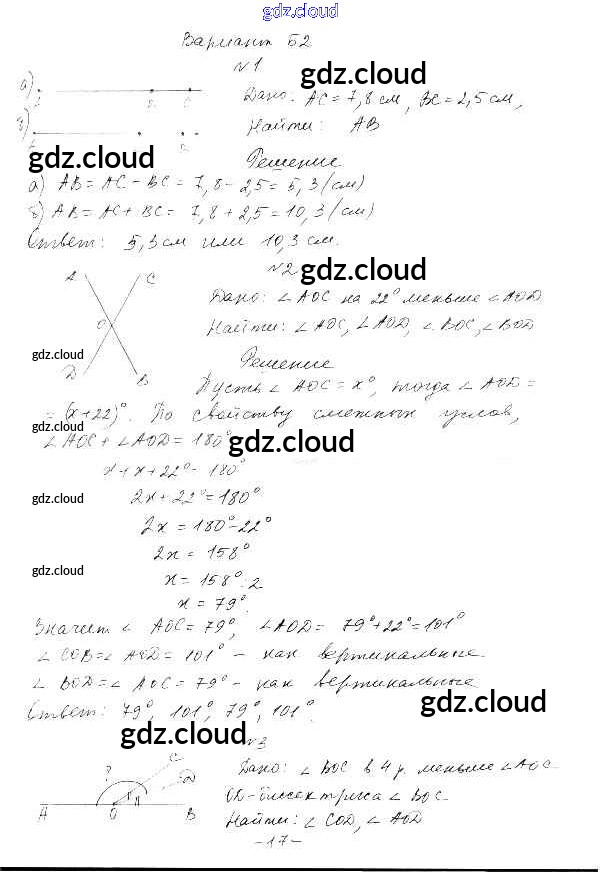 gdz.cloud
Вариант Б2
№1
gdz.cloud
а)
Дано: AC = 7,8 см, BC = 2,5 см,
б)
Найти: AB
gdz.cloud
gdz.cloud
Решение
а) AB = AC - BC = 7,8 - 2,5 = 5,3 (см)
б) AB = AC + BC = 7,8 + 2,5 = 10,3 (см)
Ответ: 5,3 см или 10,3 см.
gdz.cloud
№2
gdz.cloud
A C
Дано: ∠AOC на 22° меньше ∠AOD
O
Найти: ∠AOC, ∠AOD, ∠BOC, ∠BOD
gdz.cloud
Решение
D B
Пусть ∠AOC = x°, тогда ∠AOD =
= (x+22)°. По свойству смежных углов,
gdz.cloud
∠AOC + ∠AOD = 180°
gdz.cloud
x + x + 22° = 180°
gdz.cloud
2x + 22° = 180°
gdz.cloud
2x = 180° - 22°
2x = 158°
gdz.cloud
x = 158° : 2
x = 79°
Значит ∠AOC = 79°, ∠AOD = 79° + 22° = 101°
gdz.cloud
∠COB = ∠AOD = 101° - как вертикальные
∠BOD = ∠AOC = 79° - как вертикальные
gdz.cloud
Ответ: 79°, 101°, 79°, 101°.
gdz.cloud
№3
C
Дано: ∠BOC в 4 р. меньше ∠AOC
? D
OD - биссектриса ∠BOC
A O B
Найти: ∠COD, ∠AOD
gdz.cloud
-17-